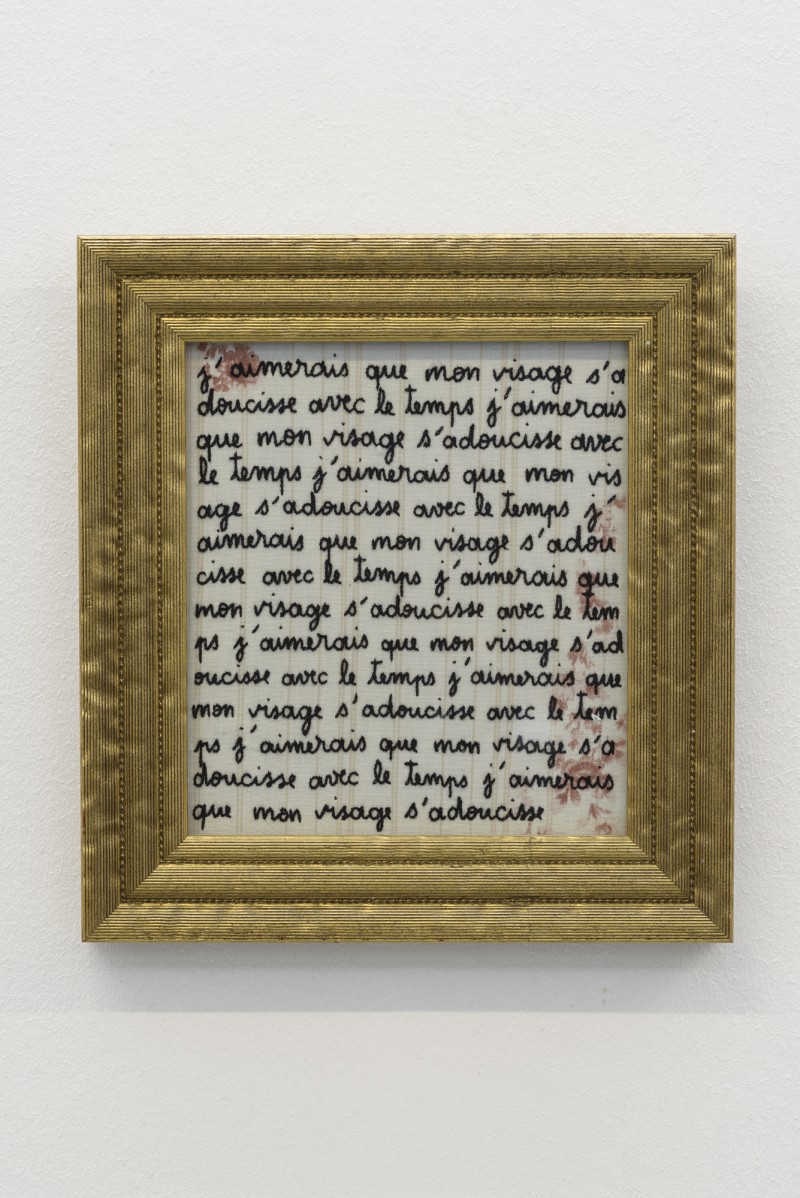 j'aimerais que mon visage s'a
doucisse avec le temps j'aimerais
que mon visage s'adoucisse avec
le temps j'aimerais que mon vis
age s'adoucisse avec le temps j'
aimerais que mon visage s'adou
cisse avec le temps j'aimerais que
mon visage s'adoucisse avec le tem
ps j'aimerais que mon visage s'ad
oucisse avec le temps j'aimerais que
mon visage s'adoucisse avec le tem
ps j'aimerais que mon visage s'a
doucisse avec le temps j'aimerais
que mon visage s'adoucisse